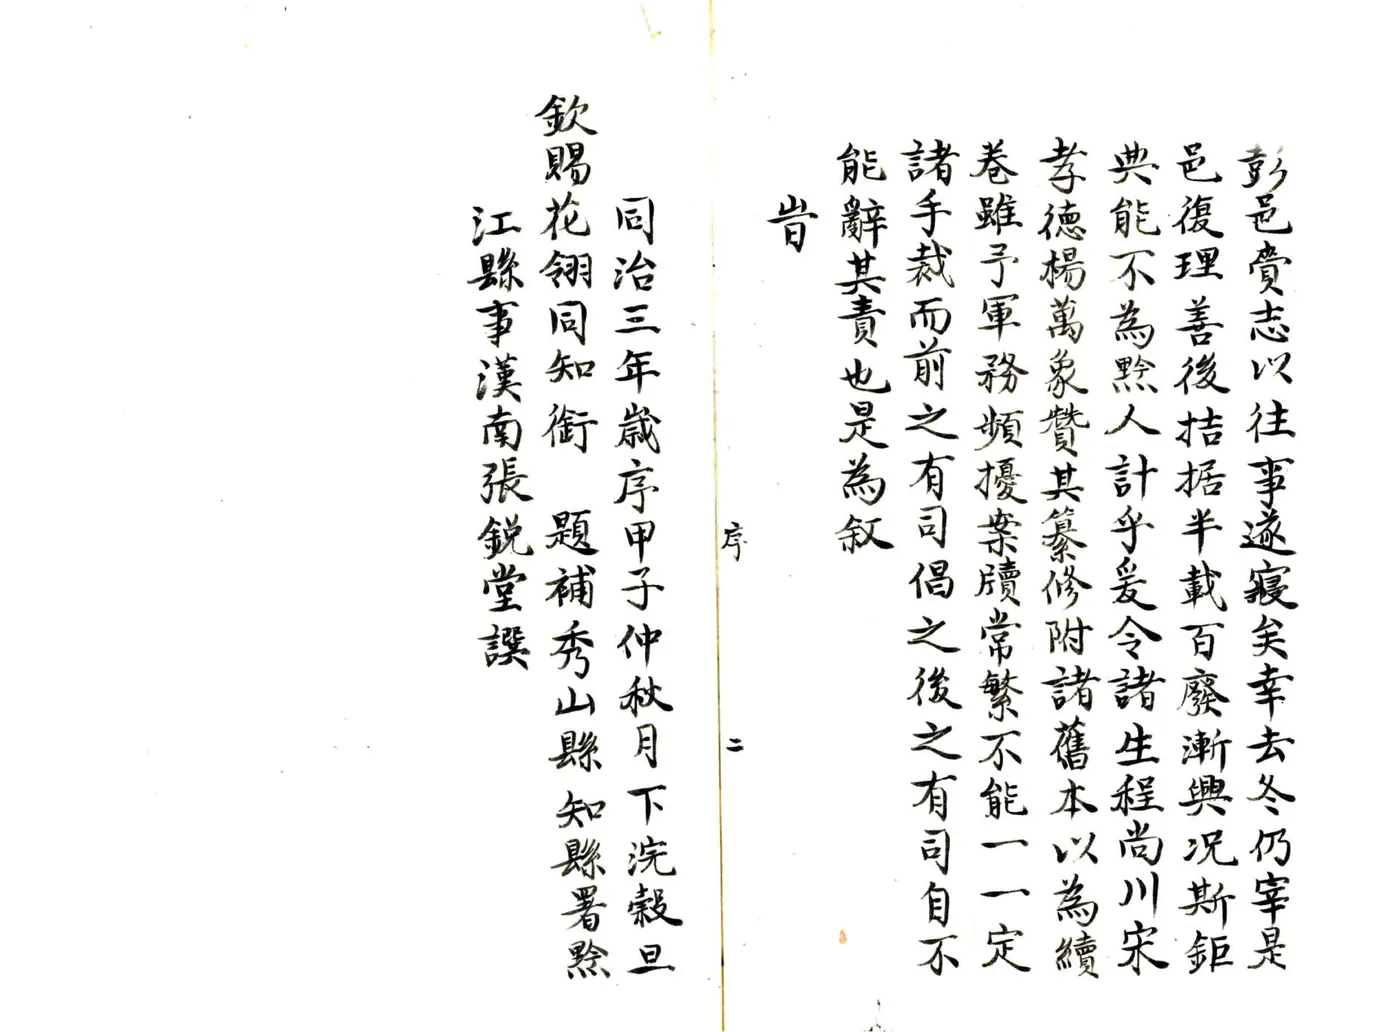 彭邑賫志以往事遂寢矣幸去冬仍宰是
邑復理善後拮据半載百廢漸興况斯鉅
典能不為黔人計乎爰令諸生程尚川宋
孝德楊萬象贊其纂修附諸舊本以為續
卷雖予軍務頻擾案牘常繁不能一一定
諸手裁而前之有司倡之後之有司自不
能辭其責也是為叙
旹
序
二
同治三年歲序甲子仲秋月下浣穀旦
欽賜花翎同知銜 題補秀山縣知縣署黔
江縣事漢南張鋭堂譔